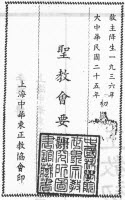 教主降生一九三六年
大中華民國二十五年
初
聖教會要
上海中華東正教協會印